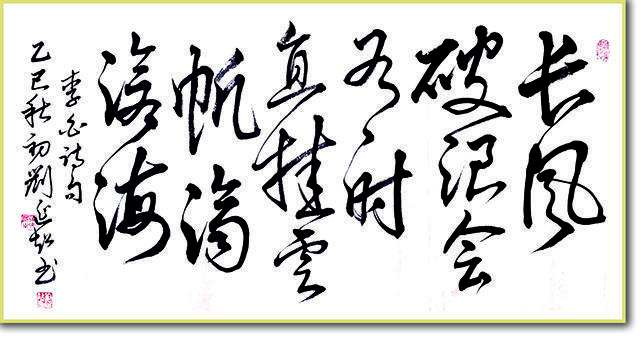 长风
破浪会
有时
直挂雲
帆济
沧海
李白诗句
乙巳秋初劉延超书